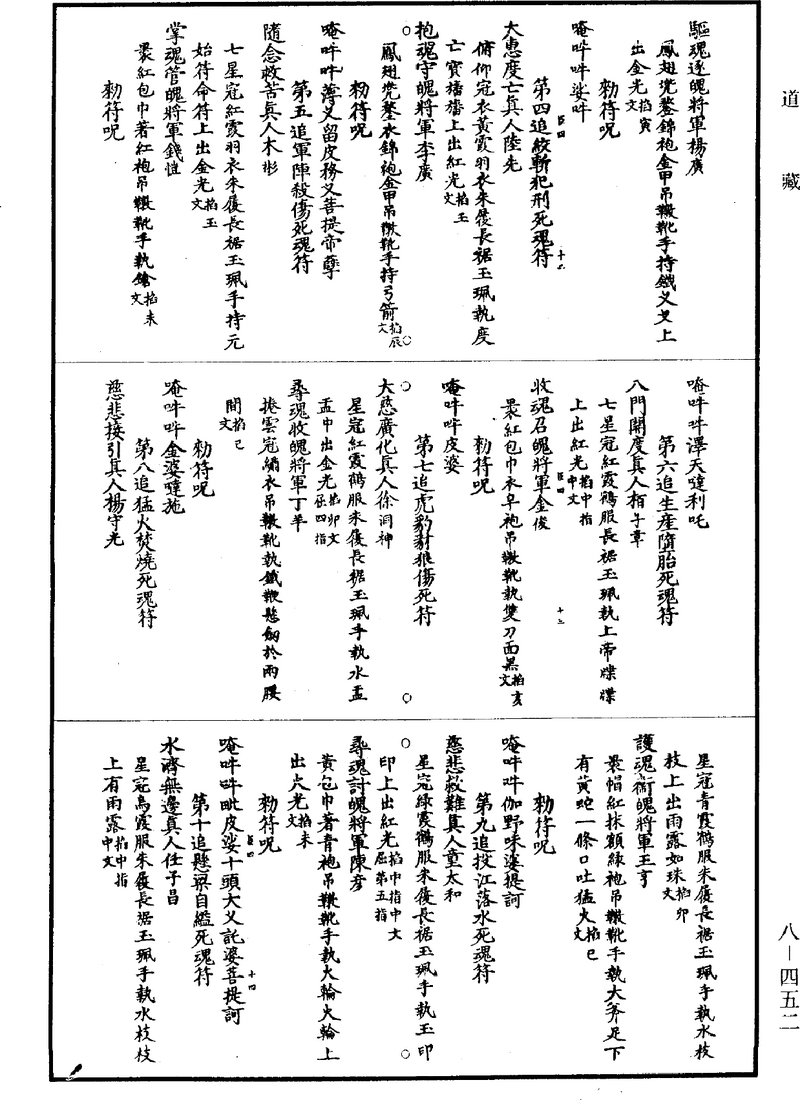 道藏
驅魂逐魄將軍楊廣
鳳翅兜鍪錦袍金甲吊𩋾靴手持鐵叉叉上
出金光掐寅文
勑符呪
唵吽吽娑吽
第四追絞斬犯刑死魂符
大惠度亡真人陸先
俯仰冠衣黃霞羽衣朱履長裾玉珮執度
亡寶旛旛上出紅光掐玉文
抱魂守魄將軍李廣
鳳翅兜鍪衣錦袍金甲吊𩋾靴手持弓箭掐辰文
勑符呪
唵吽吽薄义留皮務义菩提帝孽
第五追軍陣殺傷死魂符
隨念救苦真人木彬
七星冠紅霞羽衣朱履長裾玉珮手持元
始符命符上出金光掐玉文
掌魂管魄將軍錢愷
裹紅包巾著紅袍吊𩋾靴手執鎗掐未文
勑符呪
唵吽吽澤天噠利吒
第六追生產墮胎死魂符
八門開度真人栢子章
七星冠紅霞鶴服長裾玉珮執上帝牒牒
上出紅光掐中指中文
收魂召魄將軍金俊
裹紅包巾衣皂袍吊𩋾靴執雙刀面黑掐亥文
勑符呪
唵吽吽皮婆
第七追虎豹豺狼傷死符
大慈廣化真人徐洞神
星冠紅霞鶴服朱履長裾玉珮手執水盂
盂中出金光掐卯文屈四指
尋魂收魄將軍丁羊
捲雲冠繡衣吊𩋾靴執鐵鞭懸劒於兩腰
間掐巳文
勑符呪
唵吽吽金婆噠施
第八追猛火焚燒死魂符
慈悲接引真人楊守光
星冠青霞鶴服朱履長裾玉珮手執水枝
枝上出雨露如珠掐卯文
護魂衛魄將軍王亨
裹帽紅抹額綠袍吊𩋾靴手執大斧足下
有黃蛇一條口吐猛火掐巳文
勑符呪
唵吽吽伽野味婆提訶
第九追投江落水死魂符
慈悲救難真人童太和
星冠綠霞鶴服朱履長裾玉珮手執玉印
印上出紅光掐中指中文屈第五指
尋魂討魄將軍陳彥
黃包巾著青袍吊𩋾靴手執火輪火輪上
出火光掐未文
勑符呪
唵吽吽毗皮娑十頭大义託婆菩提訶
第十追懸梁自縊死魂符
水濟無邊真人任子昌
星冠烏霞服朱履長裾玉珮手執水枝枝
上有雨露掐中指中文
八—四五二